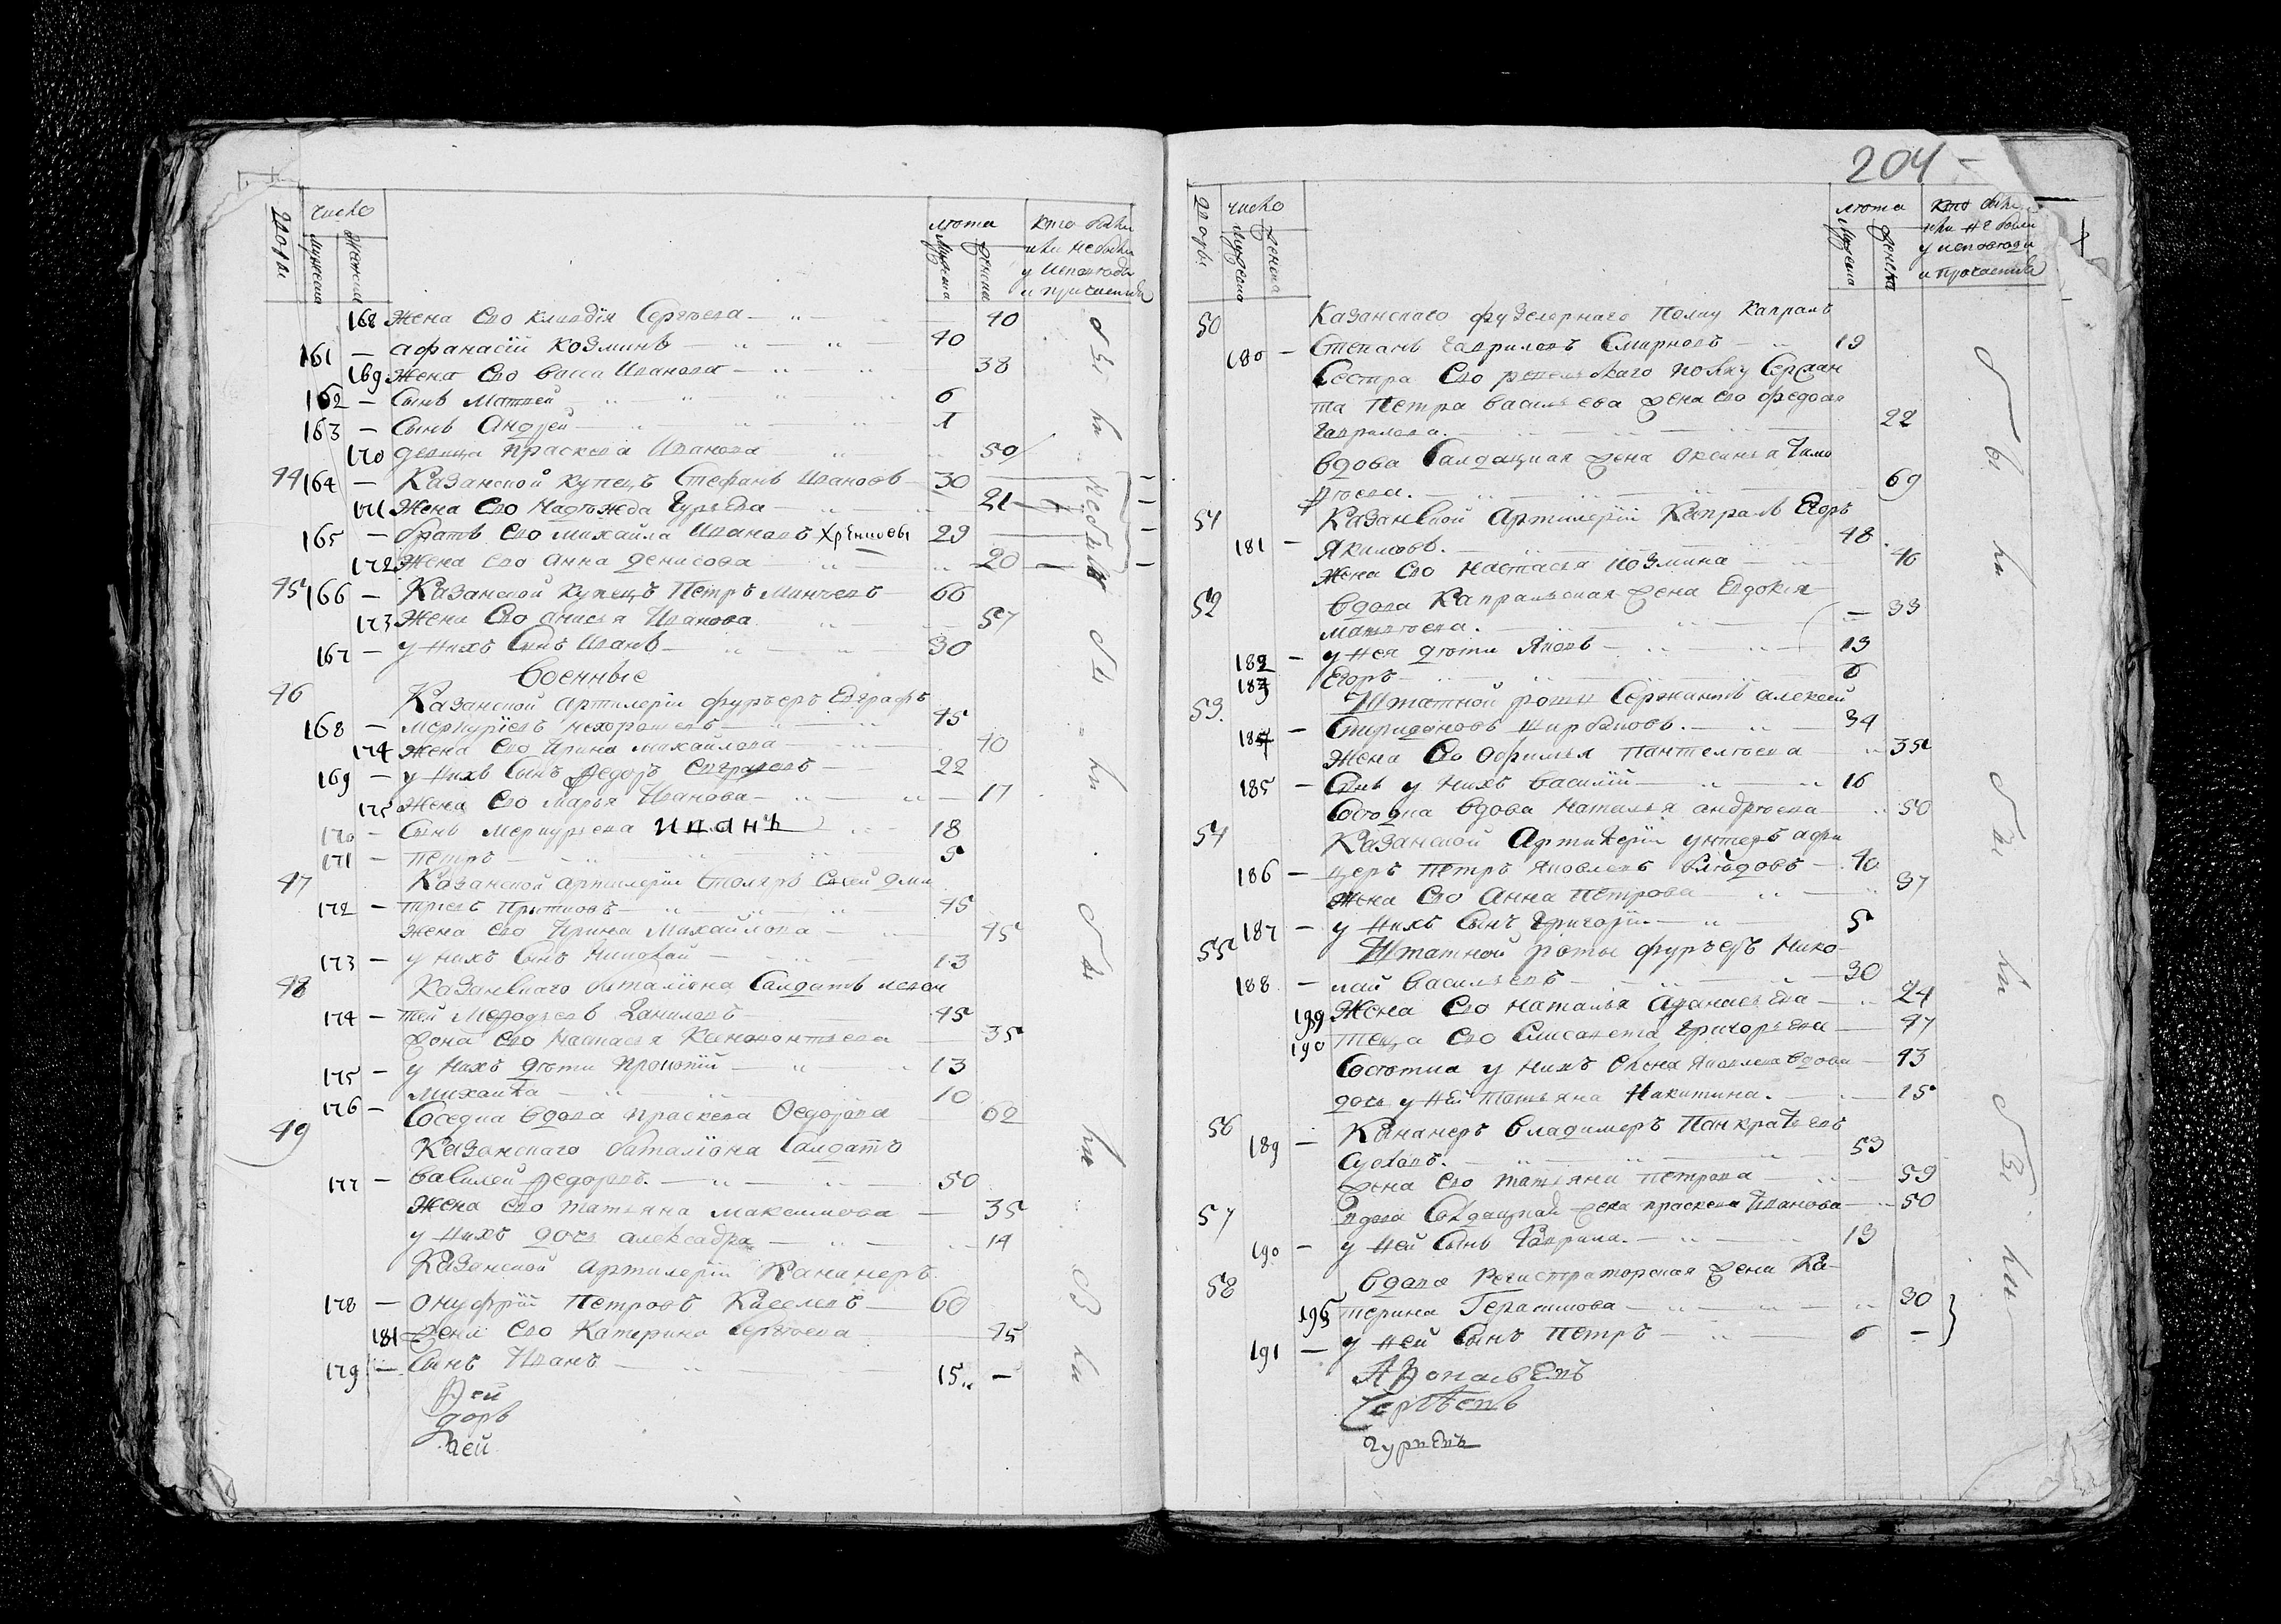 число
дворы
мужеска
женска
лѣта
мужеска
женска
кто были
или небыли
у исповеди
и причастия
168 жена ево Клавдія Сергѣева 40
161 — афанасіи козминъ 40
169 жена ево васса Иванова 38
162 — Сынъ матвей 6
163 — Сынъ Андрей
170 девица праскева Иванова 50
44 164 — Казанской купецъ Стефанъ Ивановъ 30
171 Жена ево Надѣжда Гурьева 21
165 — братъ ево михаила Ивановъ 29
172 Жена ево анна денисова 20
небыли
45 166 — Казанской купецъ Петръ 66
173 Жена ево анисья Иванова 57
167 — у нихъ Сынъ Иванъ 30
военные
46 Казанской артилеріи фурьеръ Евграфъ
168 — меркурїевъ нехорошевъ 45
174 жена ево Ирина михайлова 40
169 — у нихъ Сынъ федоръ 22
175 жена ево марья Иванова 17
170 — Сынъ меркурьева иванъ 18
171 — петръ 5
47 Казанской артилеріи столяръ
172 — 45
жена ево Ирина Михайлова 45
173 — у нихъ Сынъ Николай 13
48 Казанскаго баталіона Салдатъ
174 — Даниловъ 45
жена ево настасья 35
175 — у нихъ дѣти прокопій 13
176 — михаила 10
Соседка вдова праскева Федорова 62
49 Казанскаго баталіона Салдатъ
177 — василей федоровъ. 50
Жена ево татьяна максимова 35
у нихъ дочь алексадра 14
Казанской артилеріи Кананеръ
178 — онуфрїи Петровъ Киселевъ 60
181 жена ево Катерина Сергѣева 45
179 — Сынъ Иванъ 15
рей
доръ
чей
были
204
число
дворы
мужеска
женска
лѣта
мужеска
женска
кто были
или не были
у исповеди
и причастия
50 Казанскаго фузелернаго Полку капралъ
180 — Степанъ Гавриловъ Смирновъ 19
Сестра ево полку Сержан
та Петра васильева жена ево федосья
Гаврилова. 22
вдова Салдацкая жена Оксинья Тимо
фѣева. 69
51 Казанской Артилеріи Капралъ Егоръ
181 — Якимовъ. 48
Жена ево Настасья Козмина 46
52 вдова Капральская жена Евдокея
матвѣева. 33
182 — у нея дѣти Яковъ 13
183 Егоръ 6
53. Штатной роты Сержантъ алексей
184 — Спиридоновъ Щербаковъ. 34
Жена ево Офимья Пантелѣева 35
185 — Сынъ у нихъ василїй 16
Соседка вдова Наталья андрѣева 50
54 Казанской Артилеріи унтеръ афи
186 — церъ Петръ Яковлевъ 40
Жена ево Анна Петрова 37
187 — у нихъ Сынъ Григорїи. 5
55 Штатной роты фурьеръ Нико-
188 — лай васильевъ 30
189 Жена ево наталья афанасьева 24
190 теща ево Елисавета Григорьева 47
Соседка у нихъ Яковлева вдова 43
дочь у ней татьяна Никитина. 15
56 Кананеръ владимеръ Панкратьевъ
189 — Сусловъ. 53
жена ево татьяна петрова 59
57 вдова Салдацкая жена праскева Иванова 50
190 — у ней Сынъ Гаврила. 13
58 вдова Регистраторская жена Ка-
195 терина Герасимова 30
191 — у ней Сынъ Петръ 6
Сергѣевъ
гурьевъ
были